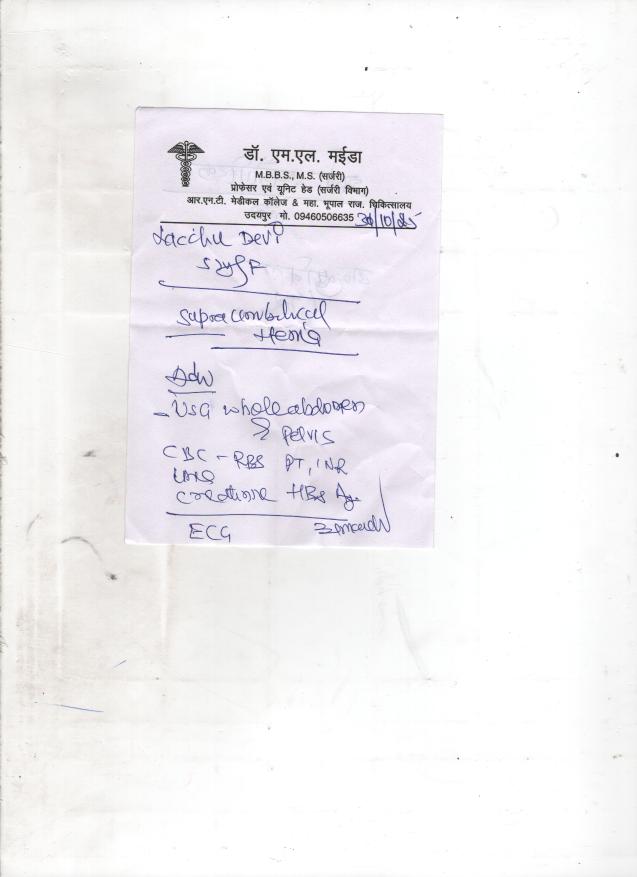 डॉ. एम.एल. मईडा
M.B.B.S., M.S. (सर्जरी)
प्रोफेसर एवं यूनिट हेड (सर्जरी विभाग)
आर.एन.टी. मेडीकल कॉलेज & महा. भूपाल राज. चिकित्सालय
उदयपुर मो. 09460506635 30/10/25
Lacchu Devi
Supraumbilical
Hernia
Adv
- USG whole abdomen
& Pelvis
CBC - RBS PT, INR
Urea
Creatinine HBs Ag
ECG